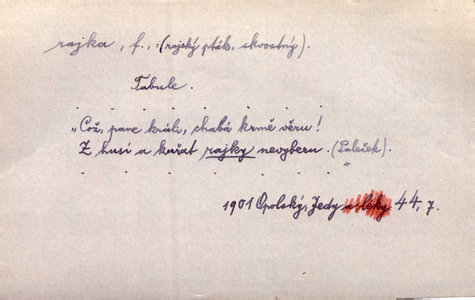 rajka, f., (rajský pták, skvostný).
Tabule.
. . . . . . .
„Což, pane králi, chabá krmě věru!
Z husí a kuřat rajky nevyberu. (Paleček).
. . . . . . "
1901 Opolský, Jedy a léky 44, 7.